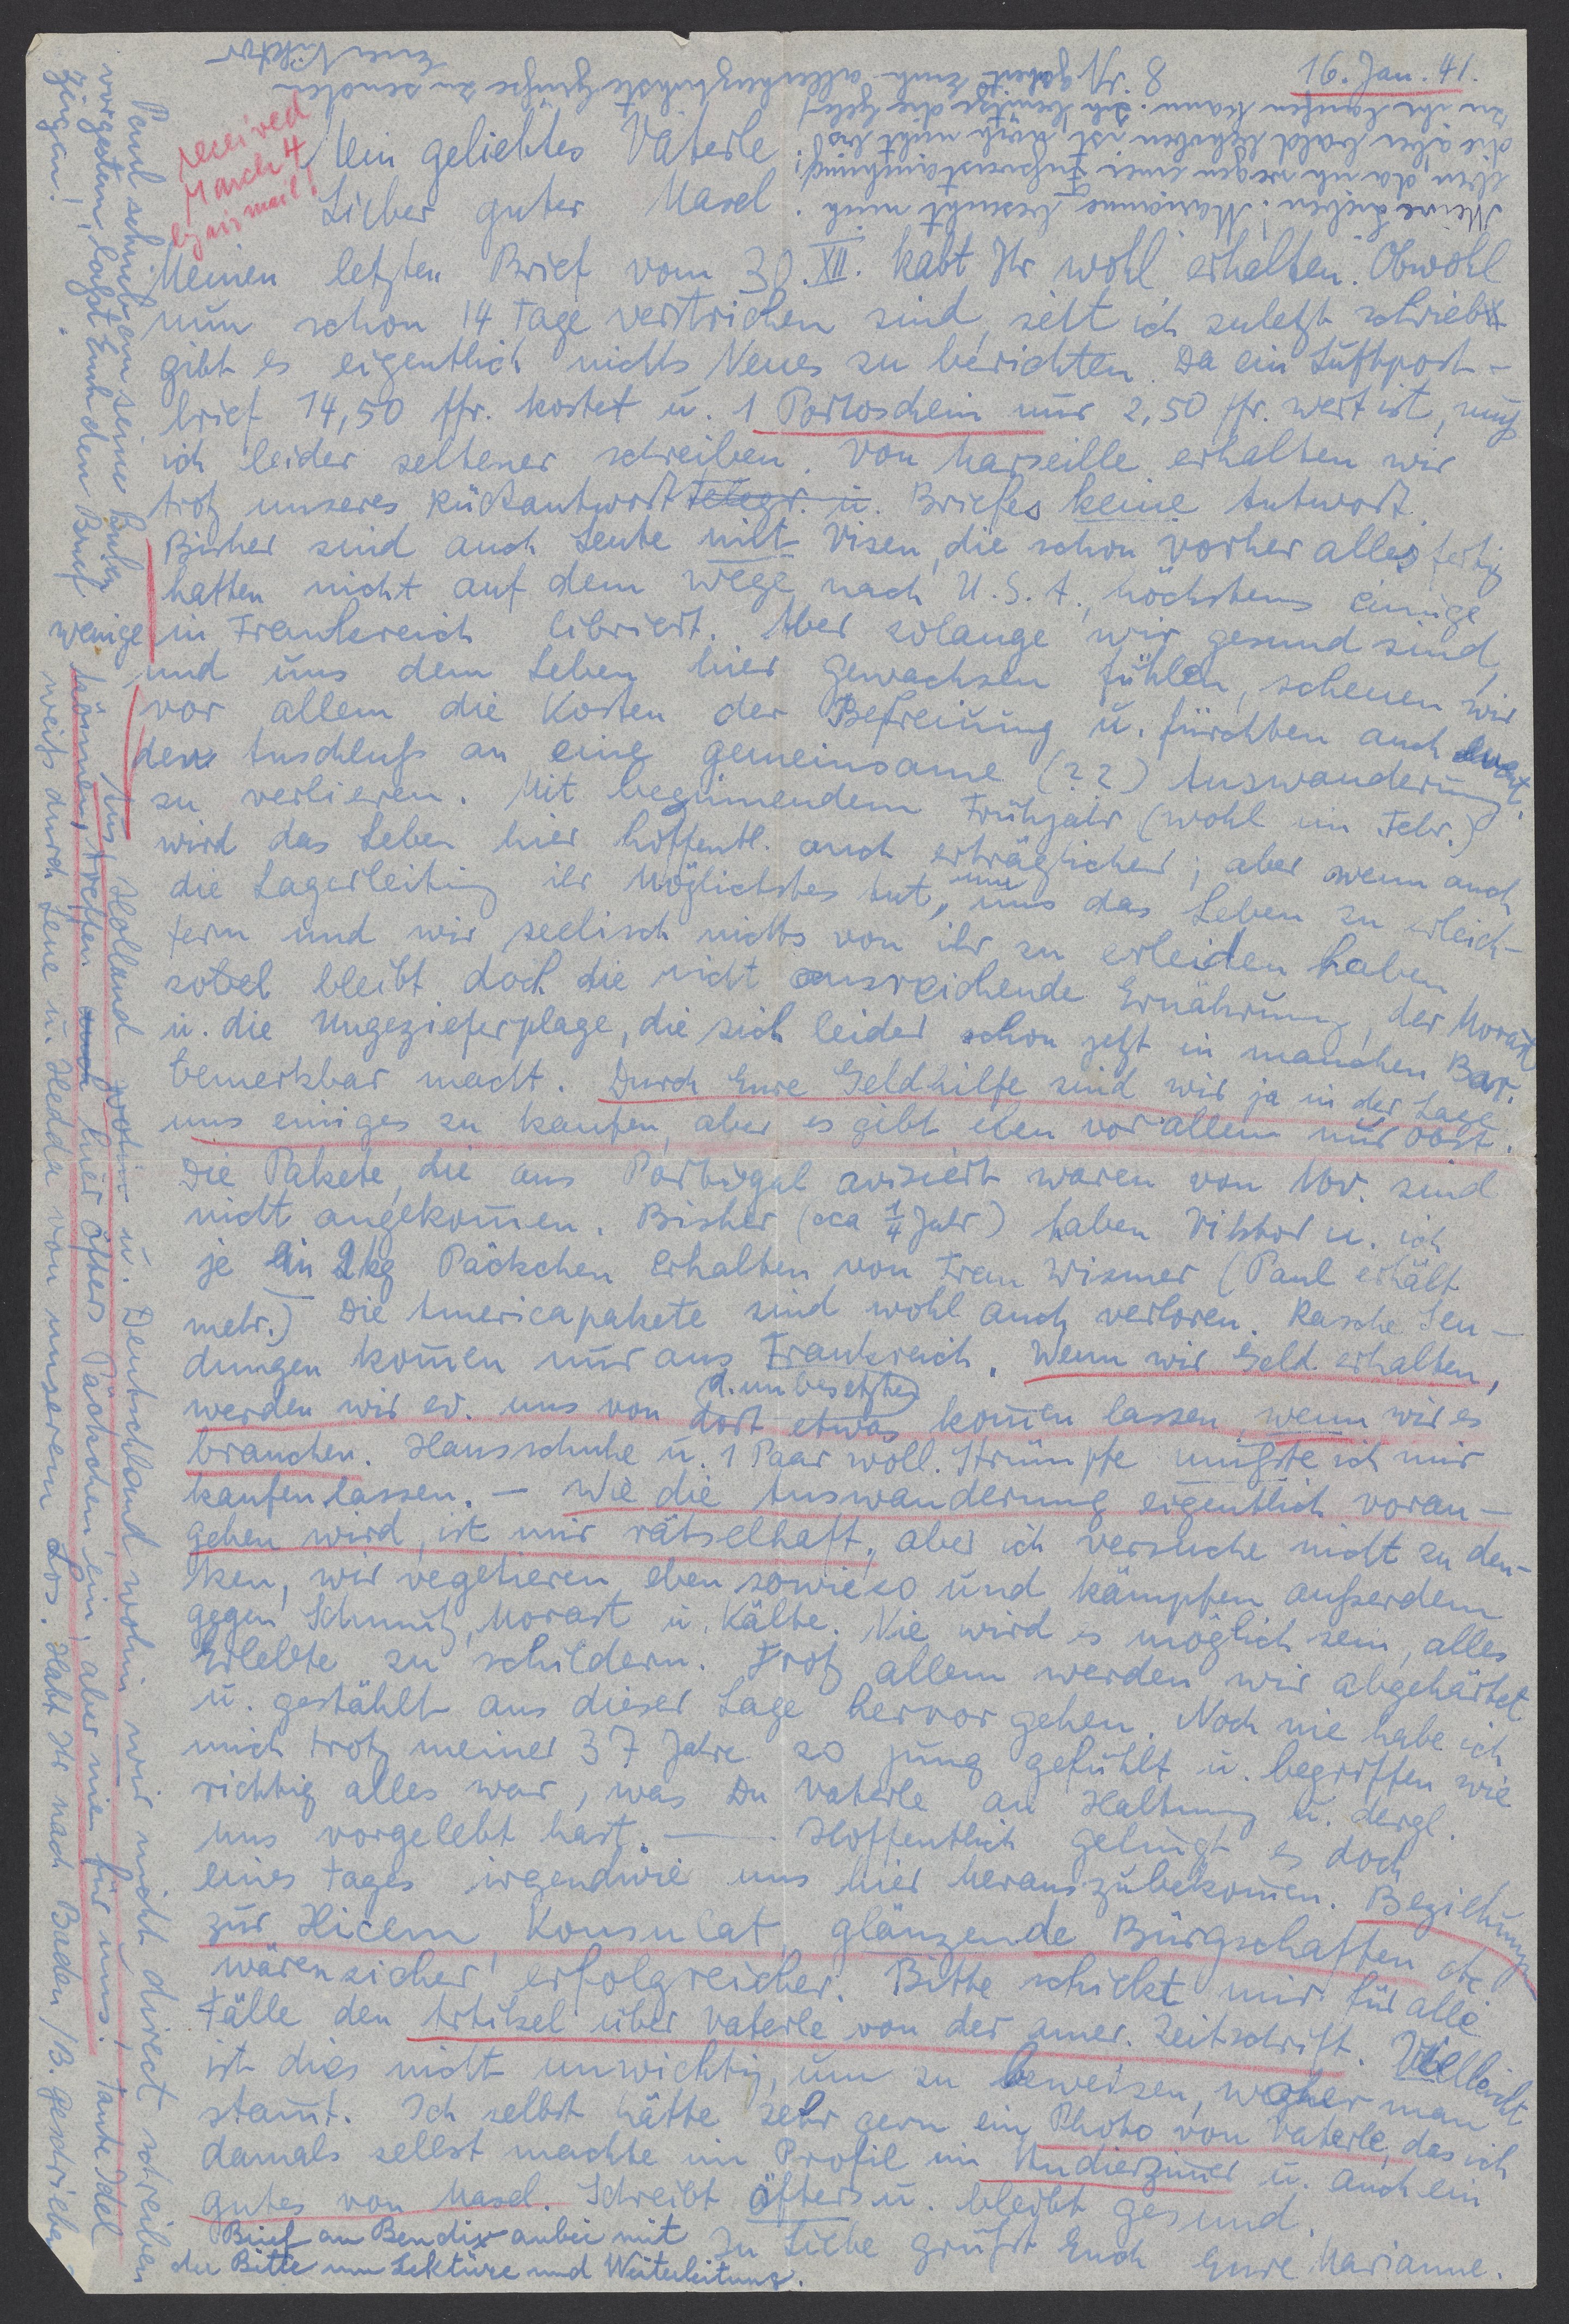 16. Jan. 41.
8
received
March 4
by air mail!
Mein geliebtes Vaterle
Lieber guter Masel.
Meinen letzten Brief vom 30. XII. habt Ihr wohl erhalten. Obwohl
nun schon 14 Tage verstrichen sind, seit ich zuletzt schrieb
gibt es eigentlich nichts Neues zu berichten. Da ein Luftpost-
brief 14,50 ffr. kostet u. 1 Portoschein nur 2,50 ffr. wert ist, muß
ich leider seltener schreiben. Von Marseille erhalten wir
trotz unseres Rückantwort telegr. u. Briefes keine Antwort.
Bisher sind auch Leute mit Visen, die schon vorher alles fertig
hatten nicht auf dem Wege nach U.S.A., höchstens einige
wenige in Frankreich liberiert. Aber solange wir gesund sind,
und uns dem Leben hier gewachsen fühlen, scheuen wir
vor allem die Kosten der Befreiung u. fürchten auch event.
den Anschluß an eine gemeinsame (??) Auswanderung
zu verlieren. Mit beginnendem Frühjahr (wohl im Febr.)
wird das Leben hier hoffentl. auch erträglicher; aber wenn auch
die Lagerleitung ihr Möglichstes tut, um uns das Leben zu erleich-
tern und wir seelisch nichts von ihr zu erleiden haben
so bleibt doch die nicht ausreichende Ernährung, der Morast
u. die Ungezieferplage, die sich leider schon jetzt in manchen Bar.
bemerkbar macht. Durch Eure Geldhilfe sind wir ja in der Lage
uns einiges zu kaufen, aber es gibt eben vor allem nur Obst.
Die Pakete, die aus Portugal avisiert waren von Nov. sind
nicht angekommen. Bisher (ca 1/4 Jahr) haben Viktor u. ich
je ein 2kg Päckchen erhalten von Frau Wismer (Paul erhält
mehr.) Die Americapakete sind wohl auch verloren. Rasche Sen-
dungen kommen nur aus Frankreich. Wenn wir Geld erhalten,
werden wir ev. uns von dort etwas kommen lassen, wenn wir es
d. unbesetzten
brauchen. Hausschuhe u. 1 Paar woll. Strümpfe mußte ich mir
kaufen lassen. — Wie die Auswanderung eigentlich voran-
gehen wird, ist mir rätselhaft, aber ich versuche nicht zu den-
ken, wir vegetieren eben sowieso und kämpfen außerdem
gegen Schmutz, Morast u. Kälte. Nie wird es möglich sein, alles
Erlebte zu schildern. Trotz allem werden wir abgehärtet
u. gestählt aus dieser Lage hervorgehen. Noch nie habe ich
mich trotz meiner 37 Jahre so jung gefühlt u. begriffen wie
richtig alles war, was Du Vaterle an Haltung u. dergl.
uns vorgelebt hast. — Hoffentlich gelingt es doch
eines Tages irgendwie uns hier herauszubekommen. Beziehungen
zur Hicem, Konsulat, glänzende Bürgschaften etc
wären sicher erfolgreicher. Bitte schickt mir für alle
Fälle den Artikel über Vaterle von der amer. Zeitschrift. Vielleicht
ist dies nicht unwichtig, um zu beweisen, woher man
stammt. Ich selbst hätte sehr gern ein Photo von Vaterle, das ich
damals selbst machte im Profil im Studierzimmer u. auch ein
gutes von Masel. Schreibt öfters u. bleibt gesund.
In Liebe grüßt Euch Eure Marianne.
Brief an Bendix anbei mit
der Bitte um Lektüre und Weiterleitung.
Aus Holland wohin u. Deutschland wohin wir nicht direct schreiben
können, treffen hier öfters Päckchen ein, aber nie für uns! Tante Idel
weiß durch Lene u. Hedda von unserem Los. Habt Ihr nach Baden/B. geschrieben
Paul schrieb an seine Buben
vorgestern, laßt Euch den Brief
zeigen!
Meine Lieben! Marianne besucht mich
eben, da ich wegen einer Fußverstauchung,
die aber bald behoben ist, noch nicht
zu ihr laufen kann. Ich benütze die Gele-
genheit Euch allerherzlichste Grüße zu senden
Euer Viktor